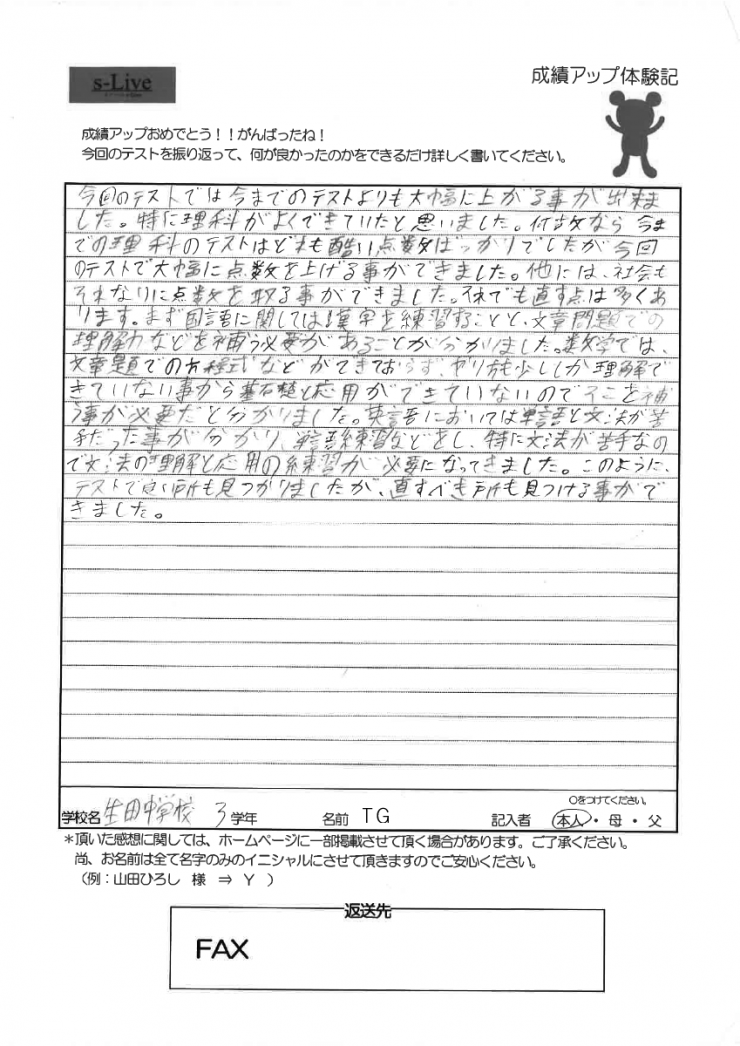 s-Live
成績アップ体験記
成績アップおめでとう！！がんばったね！
今回のテストを振り返って、何が良かったのかをできるだけ詳しく書いてください。
今回のテストでは今までのテストよりも大幅に上がる事が出来ま
した。特に理科がよくできていたと思いました。何故なら今ま
での理科のテストはどれも酷い点数ばっかりでしたが今回
のテストで大幅に点数を上げる事ができました。他には、社会も
それなりに点数を取る事ができました。それでも直す点は多くあ
ります。まず国語に関しては漢字を練習することと、文章問題での
理解力などを補う必要があることが分かりました。数学では、
文章題での方程式などができておらず、やり方も少ししか理解で
きていない事から基礎と応用ができていないのでそこを補
う事が必要だと分かりました。英語においては単語と文法が苦
手だった事が分かり、単語練習などをし、特に文法が苦手なの
で文法の理解と応用の練習が必要になってきました。このように、
テストで良い所も見つかりましたが、直すべき所も見つける事がで
きました。
○をつけてください。
学校名 生田中学校 3 学年 名前 TG 記入者 本人・母・父
＊頂いた感想に関しては、ホームページに一部掲載させて頂く場合があります。ご了承ください。
尚、お名前は全て名字のみのイニシャルにさせて頂きますのでご安心ください。
（例：山田ひろし 様 ⇒ Y ）
返送先
FAX